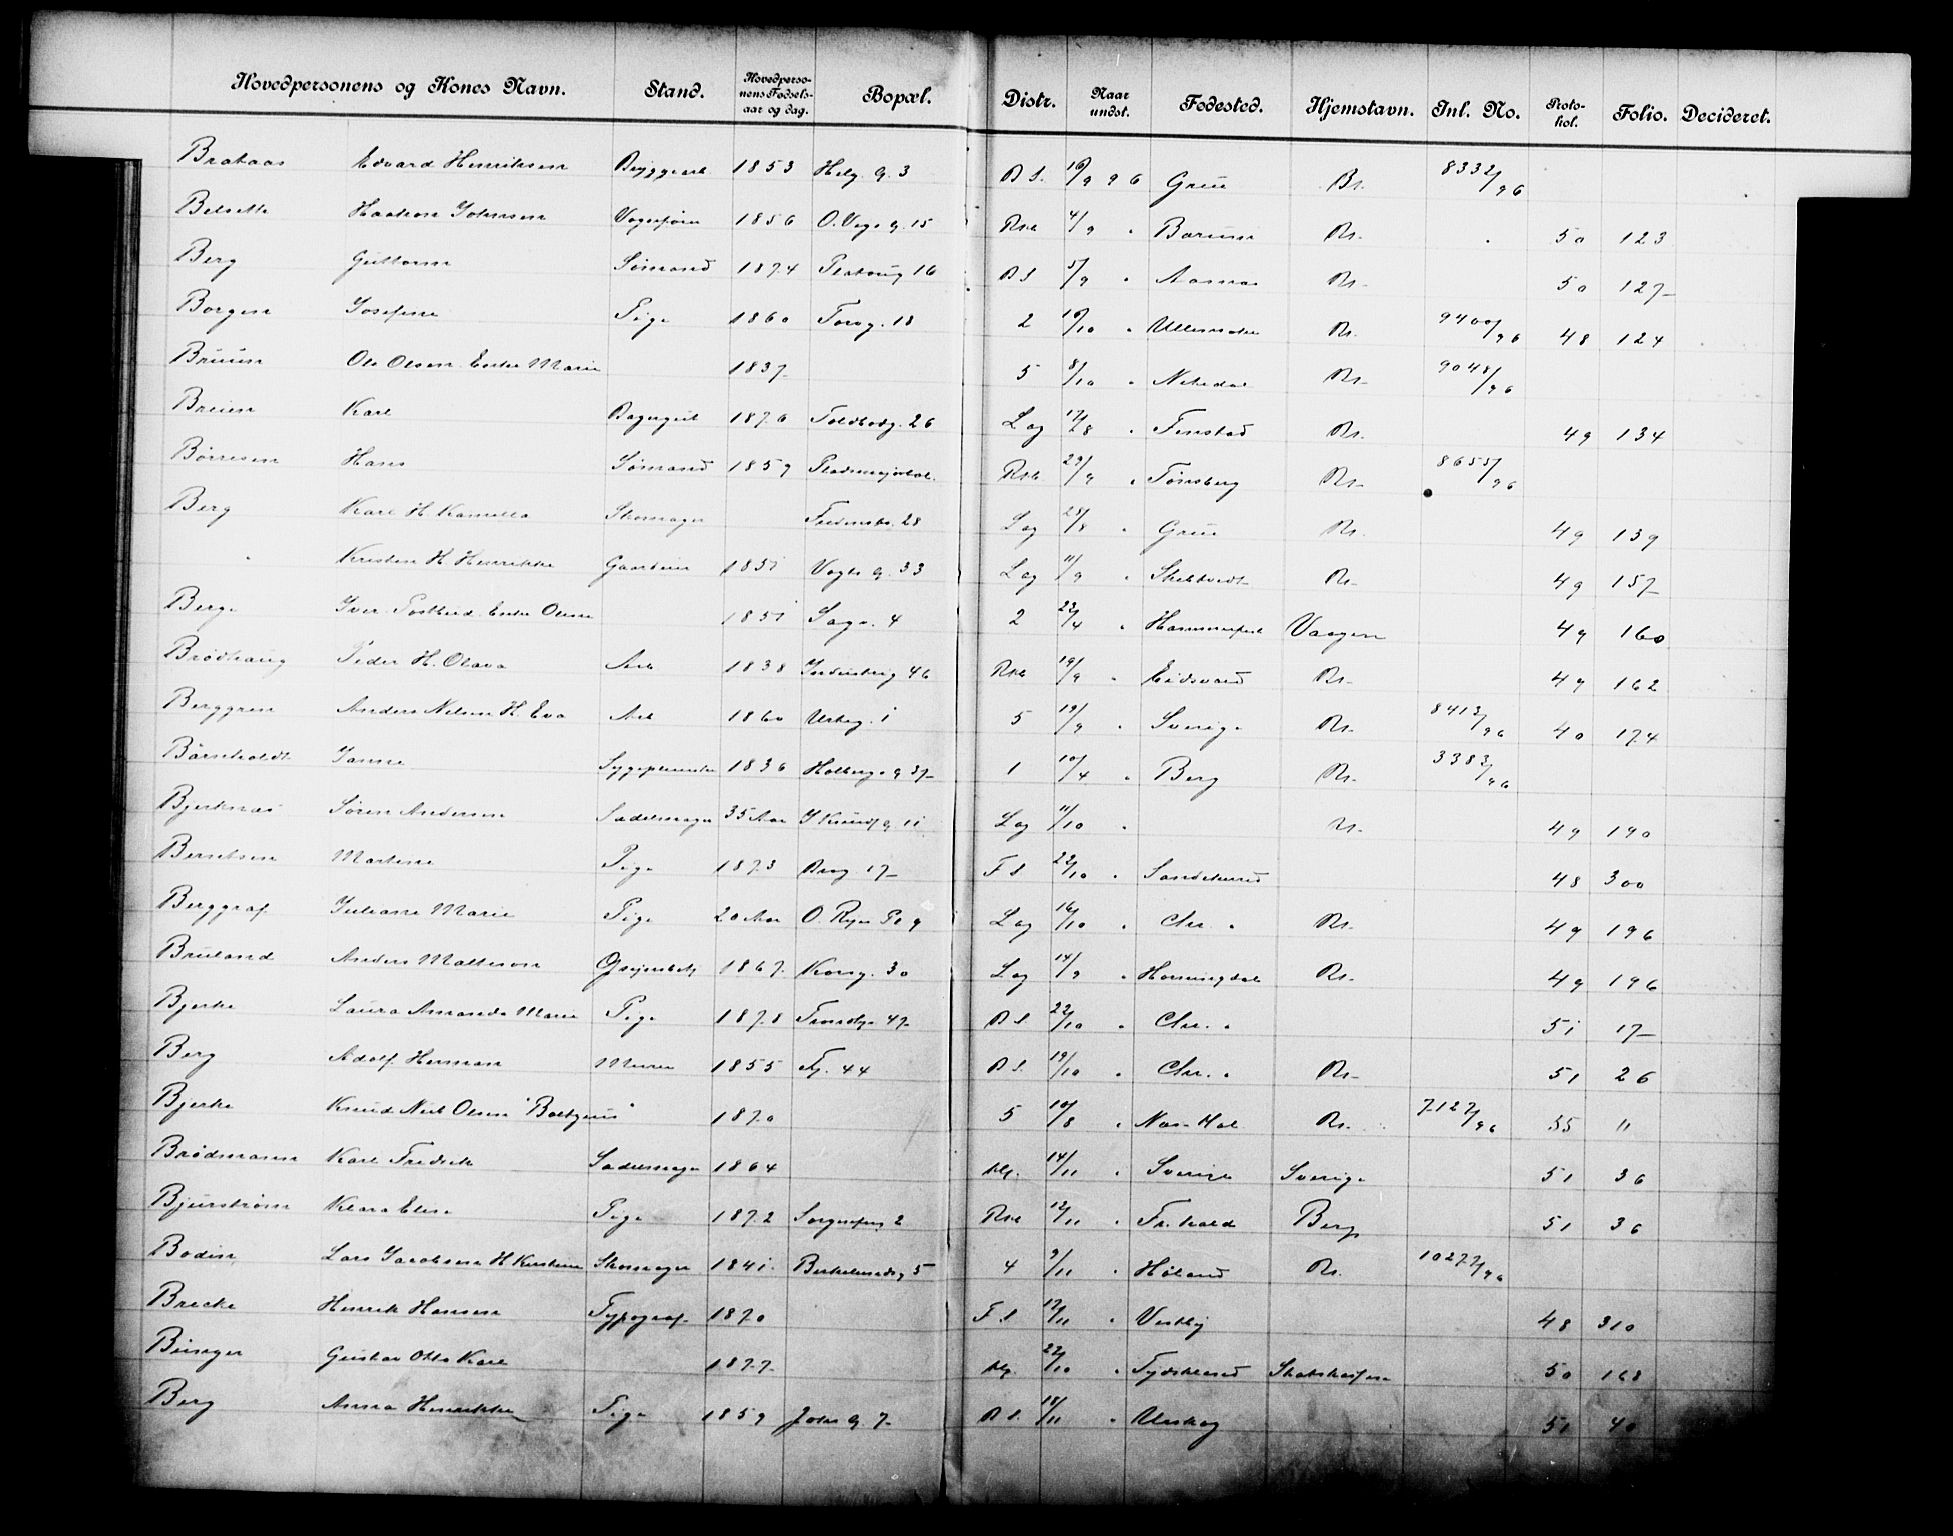 Hovedpersonens og Kones Navn. Stand. Hovedpersonens Fødselsaar og dag. Bopæl. Distr. Naar undst. Fødested. Hjemstavn. Inl. No. Protokol. Folio. Decideret.
Brataas Edvard Henriksen Bryggearb 1853 Helg. g. 3 B S. 10/9 96 Grue Kr. 8332/96
Belsette Haakon Johnsen Vognfører 1856 O. Vogt g. 15 Rsk 4/9 " Bærum Kr. 50 123
Berg Guttorm Sømand 1874 Platoug 16 B S 5/9 " Aasnæs Kr. 50 127
Borgen Josefine Pige 1860 Torvg. 18 2 10/10 " Ullensaker Kr. 9400/96 48 124
Bruun Ole Olsen Enke Marie 1837 5 8/10 " Nitedal Kr. 9048/96
Breien Karl Bagergut 1876 Toldbodg. 26 Lag 17/8 " Fenstad Kr. 49 134
Børresen Hans Sømand 1859 Rsk 29/9 " Tønsberg Kr. 8655/96
Berg Karl H. Kamilla Skomager 28 Lag 28/8 " Grue Kr. 49 139
" Kristen H. Henrikke 1851 Vogts g. 33 Lag 11/9 " Skedsvedt Kr. 49 157
Berge Iver Enke Oline 1851 Sagv. 4 2 22/4 " Hammerfest Vaagen 49 160
Brødhaug Peder H. Olava Arb 1838 Industrig 46 Rsk 19/9 " Eidsvold Kr. 49 162
Berggren Anders Nilsen H. Eva Arb 1860 Urteg. 1 5 19/9 " Sverige Kr. 8412/96 40 174
Børnholdt Janne Sygepleierske 1836 Holbergs g 37 1 10/4 " Berg Kr. 3383/96
Bjerknæs Søren Andersen Sadelmager 35 Aar J Knudg 11 Lag 11/10 " Kr. 49 190
Berntsen Martine Pige 1873 Brog. 17 F S 22/10 " Sandeherred 48 300
Berggraf Juliane Marie Pige 20 Aar O. Ryes Pl 9 Lag 16/10 " Chr. a Kr. 49 196
Bruland Anders Matteson 1867 Kong. 30 Lag 14/9 " Horningdal Kr. 49 196
Bjerke Laura Amanda Marie Pige 1878 Trondhj. 47 B S 22/10 " Chr. a 51 17
Berg Adolf Herman Murer 1855 44 B S. 19/10 " Chr. a Kr. 51 26
Bjerke Knud Nils Olsen "Balbjerus" 1870 5 10/8 " Næs Hal. Kr. 7127/96 55 11
Brødmann Karl Fredrik Sadelmager 1864 Kp. 14/11 " Sverige Sverige 51 36
Bjurstrøm Klara Elise Pige 1872 Sorgenfrig 2 Rsk 12/11 " Fr.hald Berg 51 36
Bodin Lars Jacobsen H Kristine Skomager 1841 5 4 9/11 " Høland Kr. 10277/96
Brecke Henrik Hansen Typograf 1870 F S 12/11 " Vestby 48 310
Bünger Gustav Otto Karl 1877 Kp. 22/10 " Tydskland 50 168
Berg Anna Henrikke Pige 1859 Johs g. 7 B S. 18/11 " Urskog 51 40